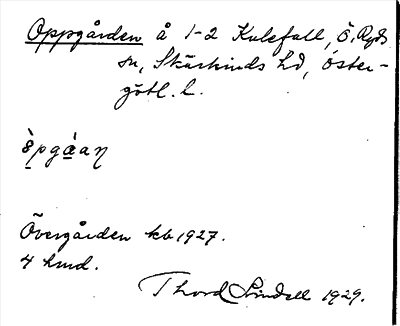 Oppgården å 1-2 Kulefall, Ö. Ryds
sn, Skärkinds hd, Öster-
götl. l.
Övergården kb 1927.
4 hmd.
Thord Lindell 1929.